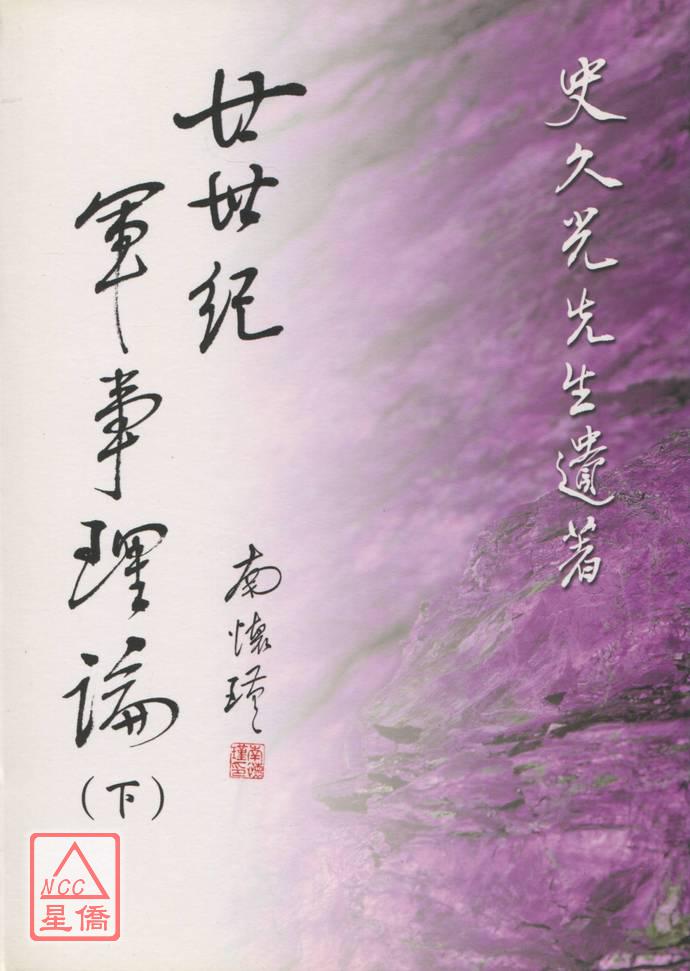 史久光先生遺著
廿世紀
軍事理論
（下）
南懷瑾
南懷瑾印
NCC
星僑